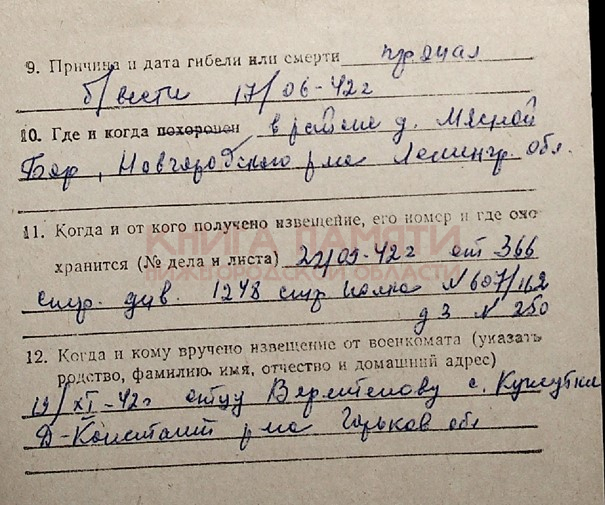 9. Причина и дата гибели или смерти пропал
б/вести 17/06-42г
10. Где и когда похоронен в районе д. Мясной
Бор, Новгородского р-на Ленингр. обл.
11. Когда и от кого получено извещение, его номер и где оно
хранится (№ дела и листа) 22/09-42г от 366
стр. див. 1248 стр полка N 607/162
д 3 N 250
КНИГА ПАМЯТИ
НИЖЕГОРОДСКОЙ ОБЛАСТИ
12. Когда и кому вручено извещение от военкомата (указать
родство, фамилию, имя, отчество и домашний адрес)
19/XI-42г отцу с.
Д-Констант р-на Горьков обл